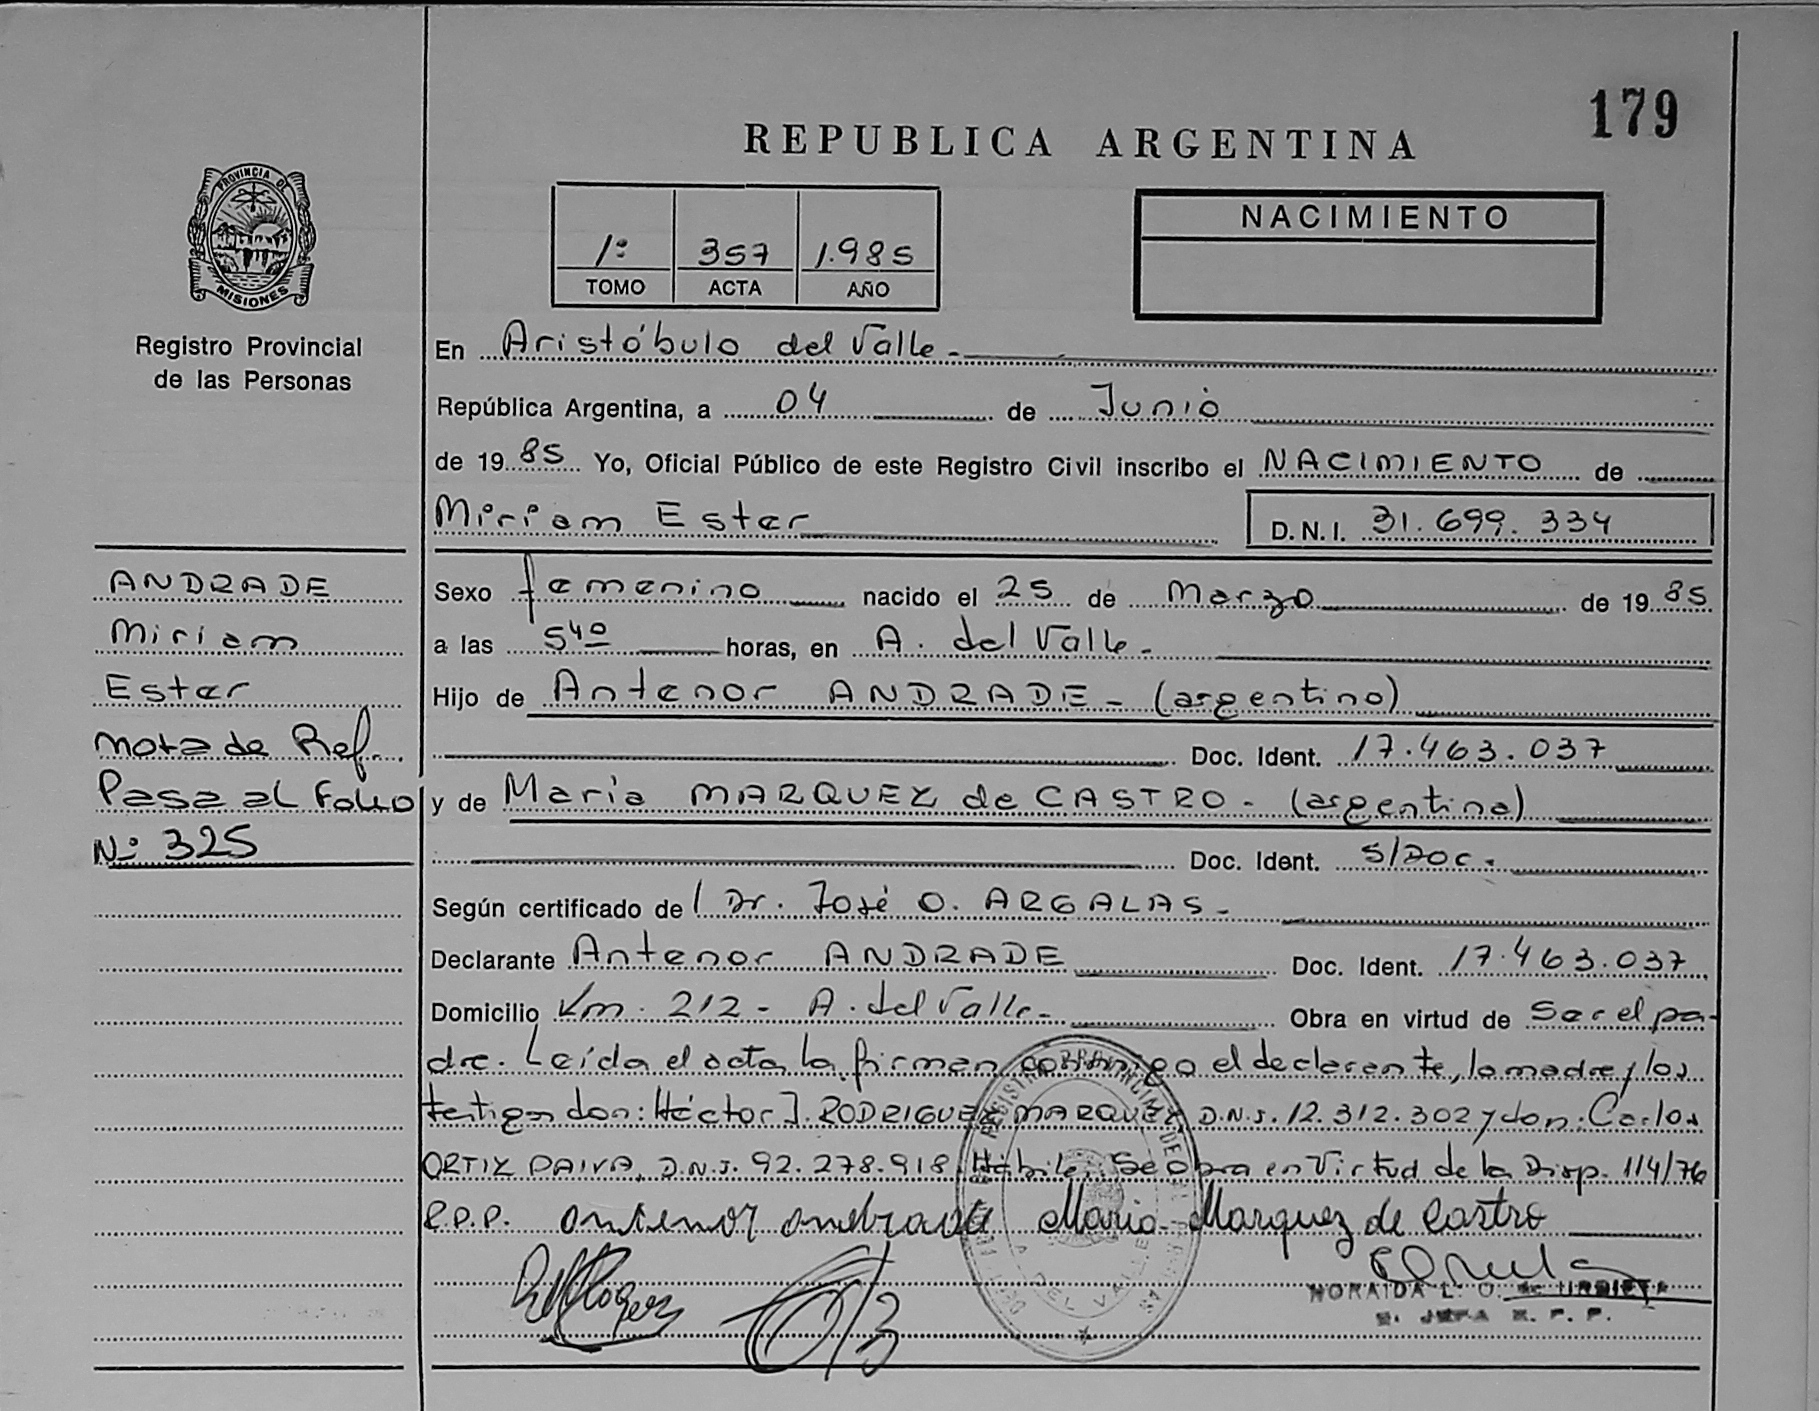 179
REPUBLICA ARGENTINA
PROVINCIA DE
MISIONES
Registro Provincial
de las Personas
1º 357 1.985
TOMO ACTA AÑO
NACIMIENTO
En Aristóbulo del Valle-
República Argentina, a 04 de Junio
de 1985 Yo, Oficial Público de este Registro Civil inscribo el NACIMIENTO de
Miriam Ester
D.N.I. 31.699.334
ANDRADE
Miriam
Ester
Nota de Ref.
Pasa al Folio
Nº 325
Sexo femenino nacido el 25 de Marzo de 1985
a las 5⁴⁰ horas, en A. del Valle-
Hijo de Antenor ANDRADE- (argentino)
Doc. Ident. 17.463.037
y de María MARQUEZ de CASTRO- (argentina)
Doc. Ident. s/Doc.
Según certificado de l Dr. José O. ARGALAS-
Declarante Antenor ANDRADE Doc. Ident. 17.463.037
Domicilio Km. 212- A. del Valle- Obra en virtud de Ser el pa-
dre. Leída el acta la firman conmigo el declarante, la madre y los
testigos don: Héctor J. RODRIGUEZ MARQUEZ, D.N.I. 12.312.302 y don: Carlos
ORTIZ PAIVA, D.N.I. 92.278.918. Hábile. Se obra en Virtud de la Disp. 114/76
R.P.P. antenor andrade Maria Marquez de Castro
NORAIDA L. O. de URRIETA
JEFA R. P. P.
DEL VALLE